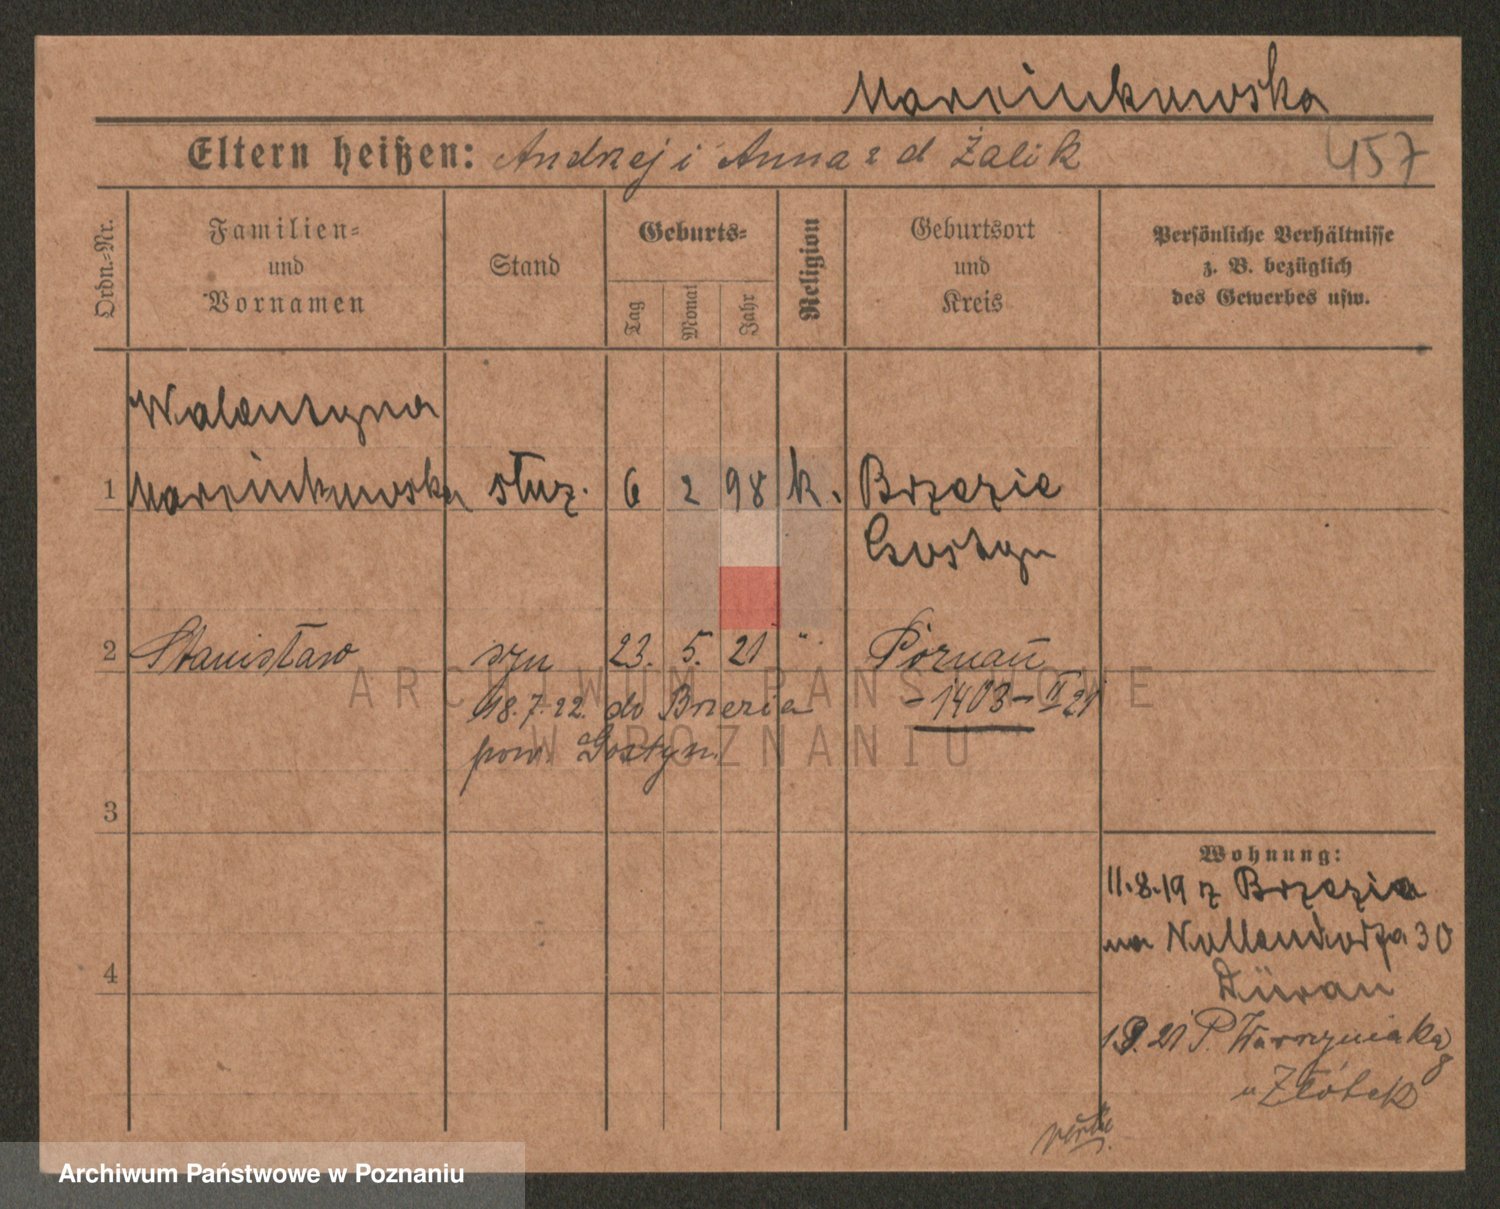 Marcinkowska
Eltern heißen: Andrzej i Anna z d Żalik
457
Ordn.-Nr.
Familien-
und
Vornamen
Stand
Geburts-
Tag
Monat
Jahr
Religion
Geburtsort
und
Kreis
Persönliche Verhältnisse
z. B. bezüglich
des Gewerbes usw.
Walentyna
1 Marcinkowska służ. 6 2 98 k. Brzezie
Gostyn
2 Stanisław syn 23. 5. 21 " Poznań
18.7.22. do Brzezia - 1403 - II 21
pow. Gostyn.
3
4
Wohnung:
11.8.19 z Brzezia
na 30
1.9.21 P. Wawrzyniaka
u
ARCHIWUM PAŃSTWOWE
W POZNANIU
Archiwum Państwowe w Poznaniu